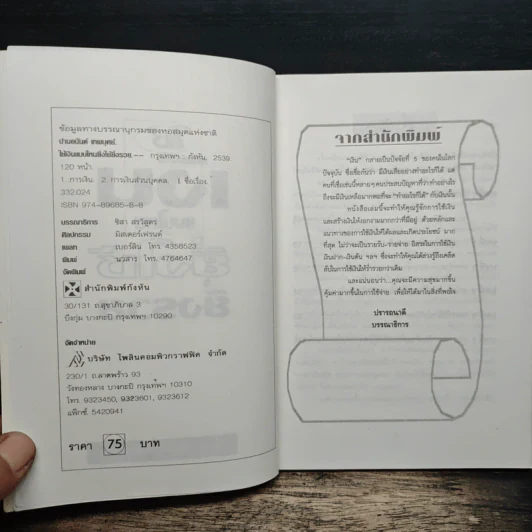 ข้อมูลทางบรรณานุกรมของหอสมุดแห่งชาติ
ปานอนันต์ เทพบุศย์.
ใช้เงินแบบไหนยิ่งใช้ยิ่งรวย.-- กรุงเทพฯ : กังหัน, 2539.
120 หน้า.
1. การเงิน. 2. การเงินส่วนบุคคล. I. ชื่อเรื่อง.
332.024
ISBN 974-89685-8-8
บรรณาธิการ ชิสา สรวิสูตร
ศิลปกรรม มิสเตอร์เฟรนด์
แยกสี เบอร์ลิน โทร. 4358523
พิมพ์ นวสาร โทร. 4764647
จัดพิมพ์
สำนักพิมพ์กังหัน
30/131 ถ.สุขาภิบาล 3
บึงกุ่ม บางกะปิ กรุงเทพฯ 10290
จัดจำหน่าย
บริษัท ไพลินคอมพิวกราฟฟิค จำกัด
230/1 ถ.ลาดพร้าว 93
วังทองหลาง บางกะปิ กรุงเทพฯ 10310
โทร. 9323450, 9323601, 9323612
แฟ็กซ์. 5420941
ราคา 75 บาท
จากสำนักพิมพ์
"เงิน" กลายเป็นปัจจัยที่ 5 ของคนในโลก
ปัจจุบัน ซึ่งเชื่อกันว่า มีเงินเสียอย่างทำอะไรก็ได้ แต่
คนที่เชื่อเช่นนี้หลายๆคนประสบปัญหาที่ว่าทำอย่างไร
ถึงจะมีเงินเหลือมากพอที่จะ "ทำอะไรก็ได้" กับเงินนั้น
หนังสือเล่มนี้จะทำให้คุณรู้จักการใช้เงิน
และสร้างเงินให้งอกงามมากกว่าที่มีอยู่ ด้วยหลักและ
แนวทางของการใช้เงินให้ได้ผลและเกิดประโยชน์ มาก
ที่สุด ไม่ว่าจะเป็นรายรับ-รายจ่าย อิสระในการใช้เงิน
เงินฝาก-เงินต้น ฯลฯ ซึ่งจะทำให้คุณได้ล่วงรู้ถึงเคล็ด
ลับในการใช้เงินให้ร่ำรวยกว่าเดิม
และแน่นอนว่า...คุณจะมีความสุขมากขึ้น
คุ้มค่ามากขึ้นในการใช้จ่าย เพื่อให้ได้มาในสิ่งที่พอใจ
ปรารถนาดี
บรรณาธิการ